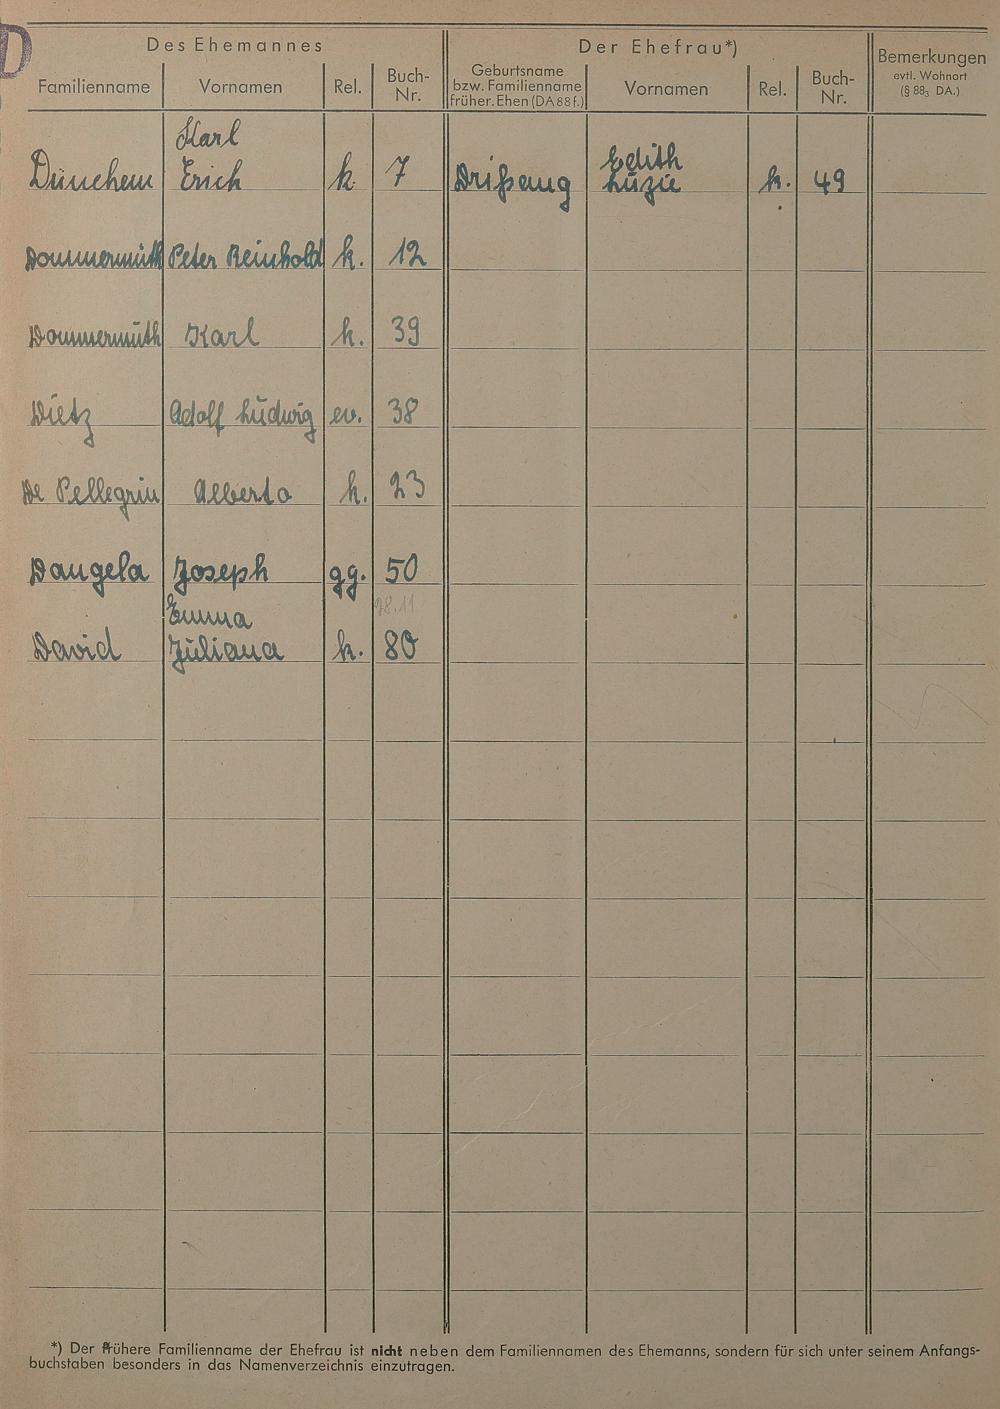 D
Des Ehemannes
Der Ehefrau*)
Bemerkungen
evtl. Wohnort
(§ 88₃ DA.)
Familienname
Vornamen
Rel.
Buch-
Nr.
Geburtsname
bzw. Familienname
früher. Ehen (DA 88 f.)
Vornamen
Rel.
Buch-
Nr.
Karl
Dünchem Erich k 7 Drißang Edith
Luzie k. 49
Dommermuth Peter Reinhold k. 12
Dommermuth Karl k. 39
Dietz Adolf Ludwig ev. 38
De Pellegrin Alberto k. 23
Dangela Joseph gg. 50
Emma 28.11
David Juliana k. 80
*) Der frühere Familienname der Ehefrau ist nicht neben dem Familiennamen des Ehemanns, sondern für sich unter seinem Anfangs-
buchstaben besonders in das Namenverzeichnis einzutragen.